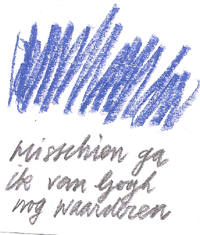 Misschien ga
ik van Gogh
nog waarderen